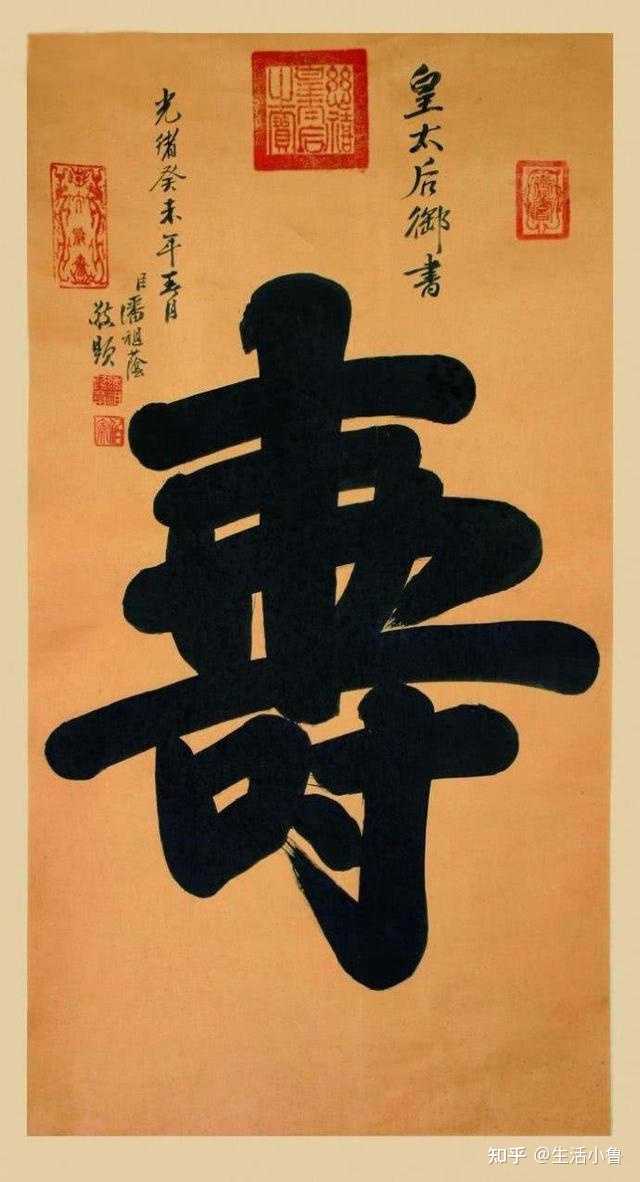 皇太后御書
慈禧皇太后之寶
壽
光緒癸未年五月
臣潘祖蔭
敬題
知乎 @生活小鲁